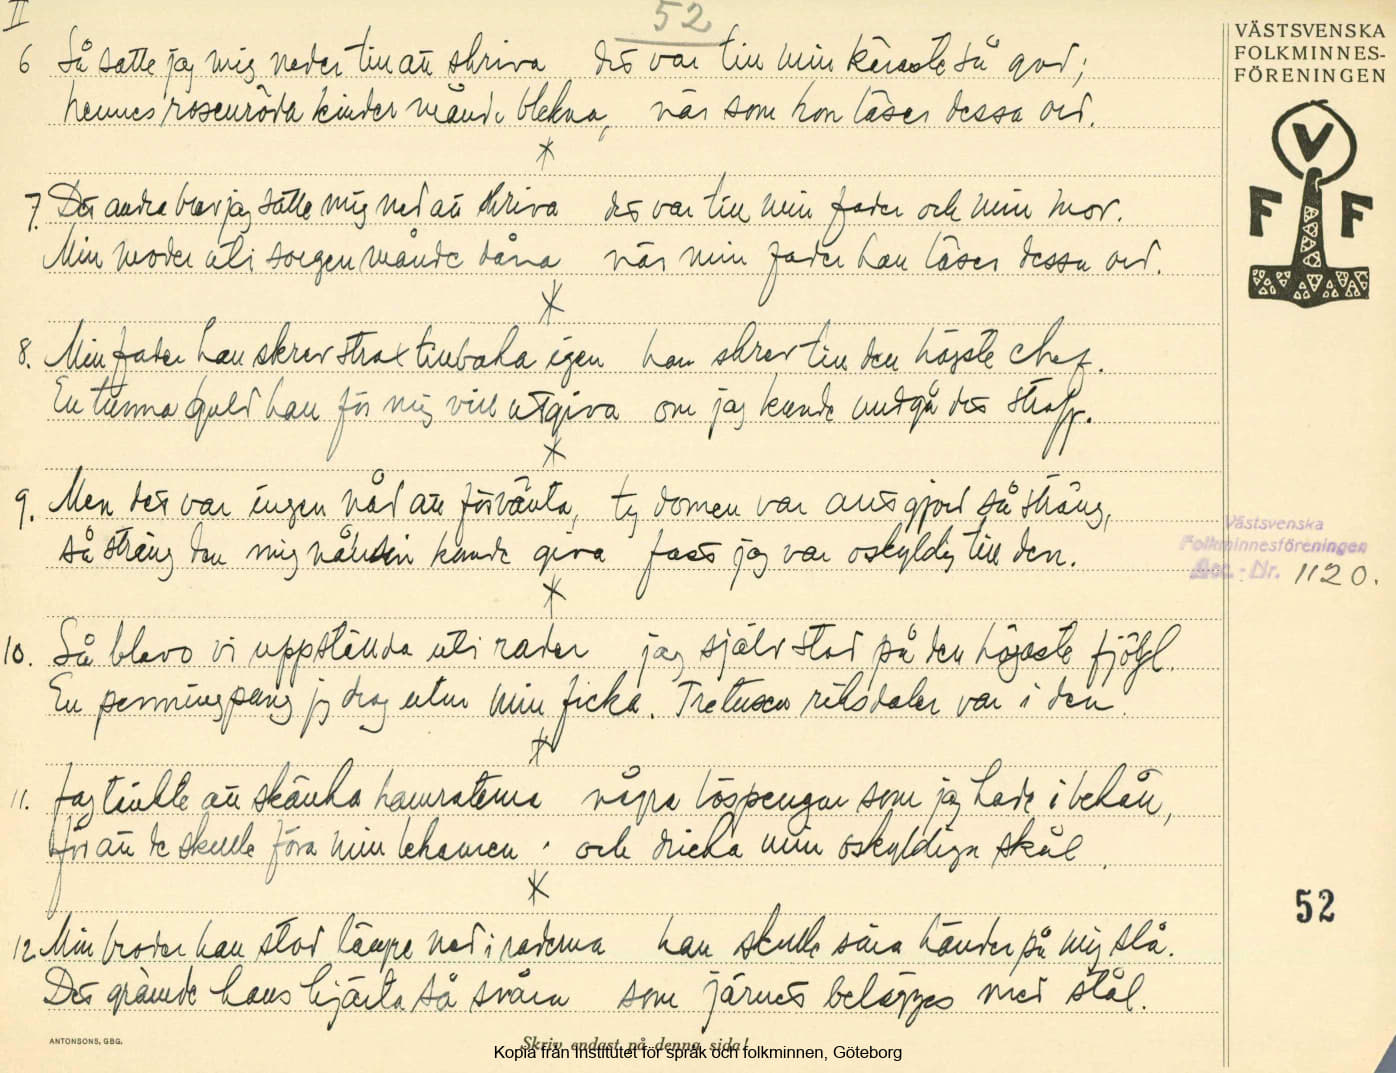 II
52
6 Så satte jag mig neder till att skriva det var till min käraste så god;
hennes rosenröda kinder månde blekna, när som hon läser dessa ord.
7. Det andra brev jag satte mig ned att skriva det var till min fader och min mor.
Min moder uti sorgen månde dåna när min fader han läser dessa ord.
8. Min fader han skrev strax tillbaka igen han skrev till den högste chef.
En tunna guld han för mig vill utgiva om jag kunde undgå det straff.
9. Men det var ingen nåd att förvänta, ty domen var avgjord så sträng,
så sträng den mig nånsin kunde giva fast jag var oskyldig till den.
10. Så blevo vi uppställda uti rader jag själv stod på den högaste flöjgl.
En penningpung jag drog utur min ficka. Tretusen riksdaler var i den.
11. Jag tänkte att skänka kamraterna några löspengar som jag hade i behåll,
för att de skulle föra min lekamen och dricka min oskyldiga skål.
12. Min broder han stod längre ned i raderna han skulle sina händer på mig slå.
Det grämde hans hjärta så svåra som järnet belägges med stål.
VÄSTSVENSKA
FOLKMINNES-
FÖRENINGEN
V
F F
Västsvenska
Folkminnesföreningen
Acc.-Nr. 1120.
52
ANTONSONS, GBG.
Skriv endast på denna sida!
Kopia från Institutet för språk och folkminnen, Göteborg